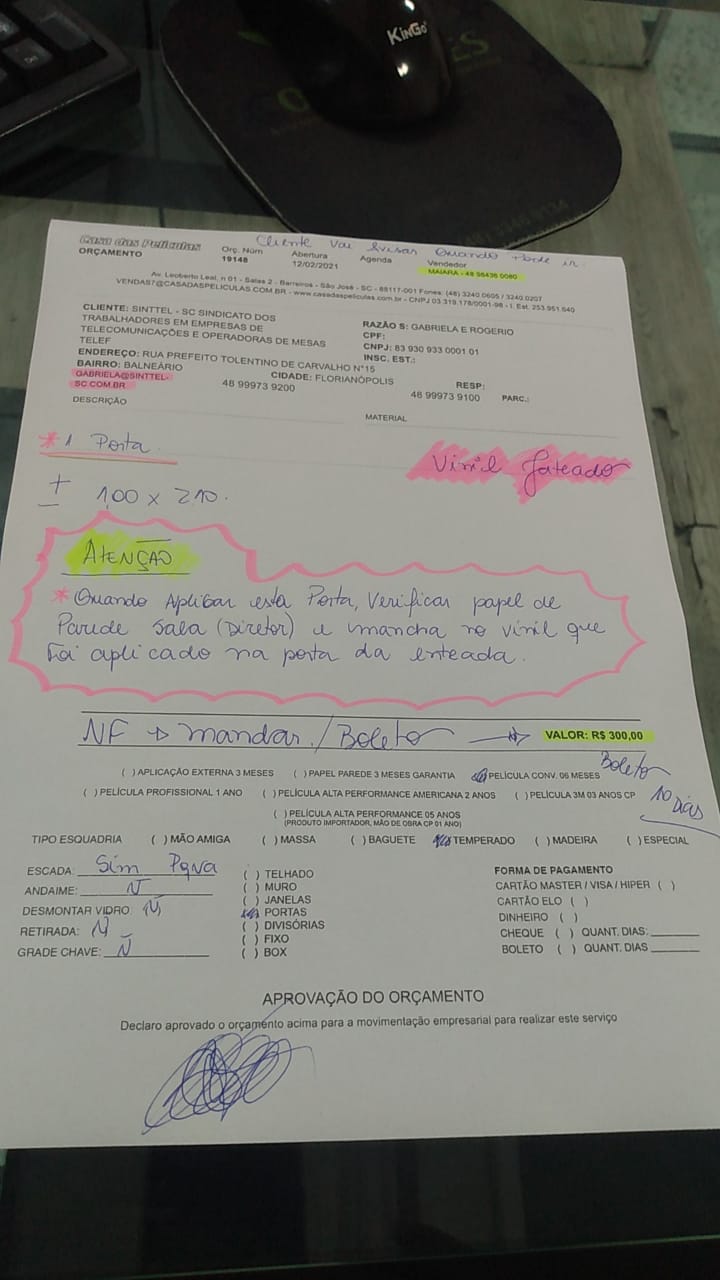 KinGo
Cliente Vai Avisar Quando Pode ir.
Casa das Películas
ORÇAMENTO
Orç. Núm Abertura Agenda Vendedor
19148 12/02/2021 MAIARA - 48 98436 0080
Av. Leoberto Leal, n 01 - Salas 2 - Barreiros - São José - SC - 88117-001 Fones: (48) 3240.0605 / 3240.0207
VENDAS7@CASADASPELICULAS.COM.BR - www.casadaspeliculas.com.br - CNPJ 03.319.178/0001-98 - I. Est. 253.951.640
CLIENTE: SINTTEL - SC SINDICATO DOS
TRABALHADORES EM EMPRESAS DE
TELECOMUNICAÇÕES E OPERADORAS DE MESAS
TELEF
RAZÃO S: GABRIELA E ROGERIO
CPF:
CNPJ: 83 930 933 0001 01
INSC. EST.:
ENDEREÇO: RUA PREFEITO TOLENTINO DE CARVALHO N°15
BAIRRO: BALNEÁRIO CIDADE: FLORIANÓPOLIS RESP:
GABRIELA@SINTTEL-
SC.COM.BR
48 99973 9200 48 99973 9100 PARC.:
DESCRIÇÃO MATERIAL
* 1 Porta.
Vinil Jateado
± 1,00 x 2,10.
ATENÇÃO
* Quando Aplicar esta Porta, Verificar papel de
Parede Sala (Diretor) e mancha no vinil que
foi aplicado na porta da enteada.
NF → mandar. / Boleto → VALOR: R$ 300,00
Boleto
10 Dias
( ) APLICAÇÃO EXTERNA 3 MESES ( ) PAPEL PAREDE 3 MESES GARANTIA ( ) PELÍCULA CONV. 06 MESES
( ) PELÍCULA PROFISSIONAL 1 ANO ( ) PELÍCULA ALTA PERFORMANCE AMERICANA 2 ANOS ( ) PELÍCULA 3M 03 ANOS CP
( ) PELÍCULA ALTA PERFORMANCE 05 ANOS
(PRODUTO IMPORTADOR, MÃO DE OBRA CP 01 ANO)
TIPO ESQUADRIA ( ) MÃO AMIGA ( ) MASSA ( ) BAGUETE ( ) TEMPERADO ( ) MADEIRA ( ) ESPECIAL
ESCADA: Sim Pqna
ANDAIME: N
DESMONTAR VIDRO: N
RETIRADA: N
GRADE CHAVE: N
( ) TELHADO
( ) MURO
( ) JANELAS
( ) PORTAS
( ) DIVISÓRIAS
( ) FIXO
( ) BOX
FORMA DE PAGAMENTO
CARTÃO MASTER / VISA / HIPER ( )
CARTÃO ELO ( )
DINHEIRO ( )
CHEQUE ( ) QUANT. DIAS:
BOLETO ( ) QUANT. DIAS
APROVAÇÃO DO ORÇAMENTO
Declaro aprovado o orçamento acima para a movimentação empresarial para realizar este serviço